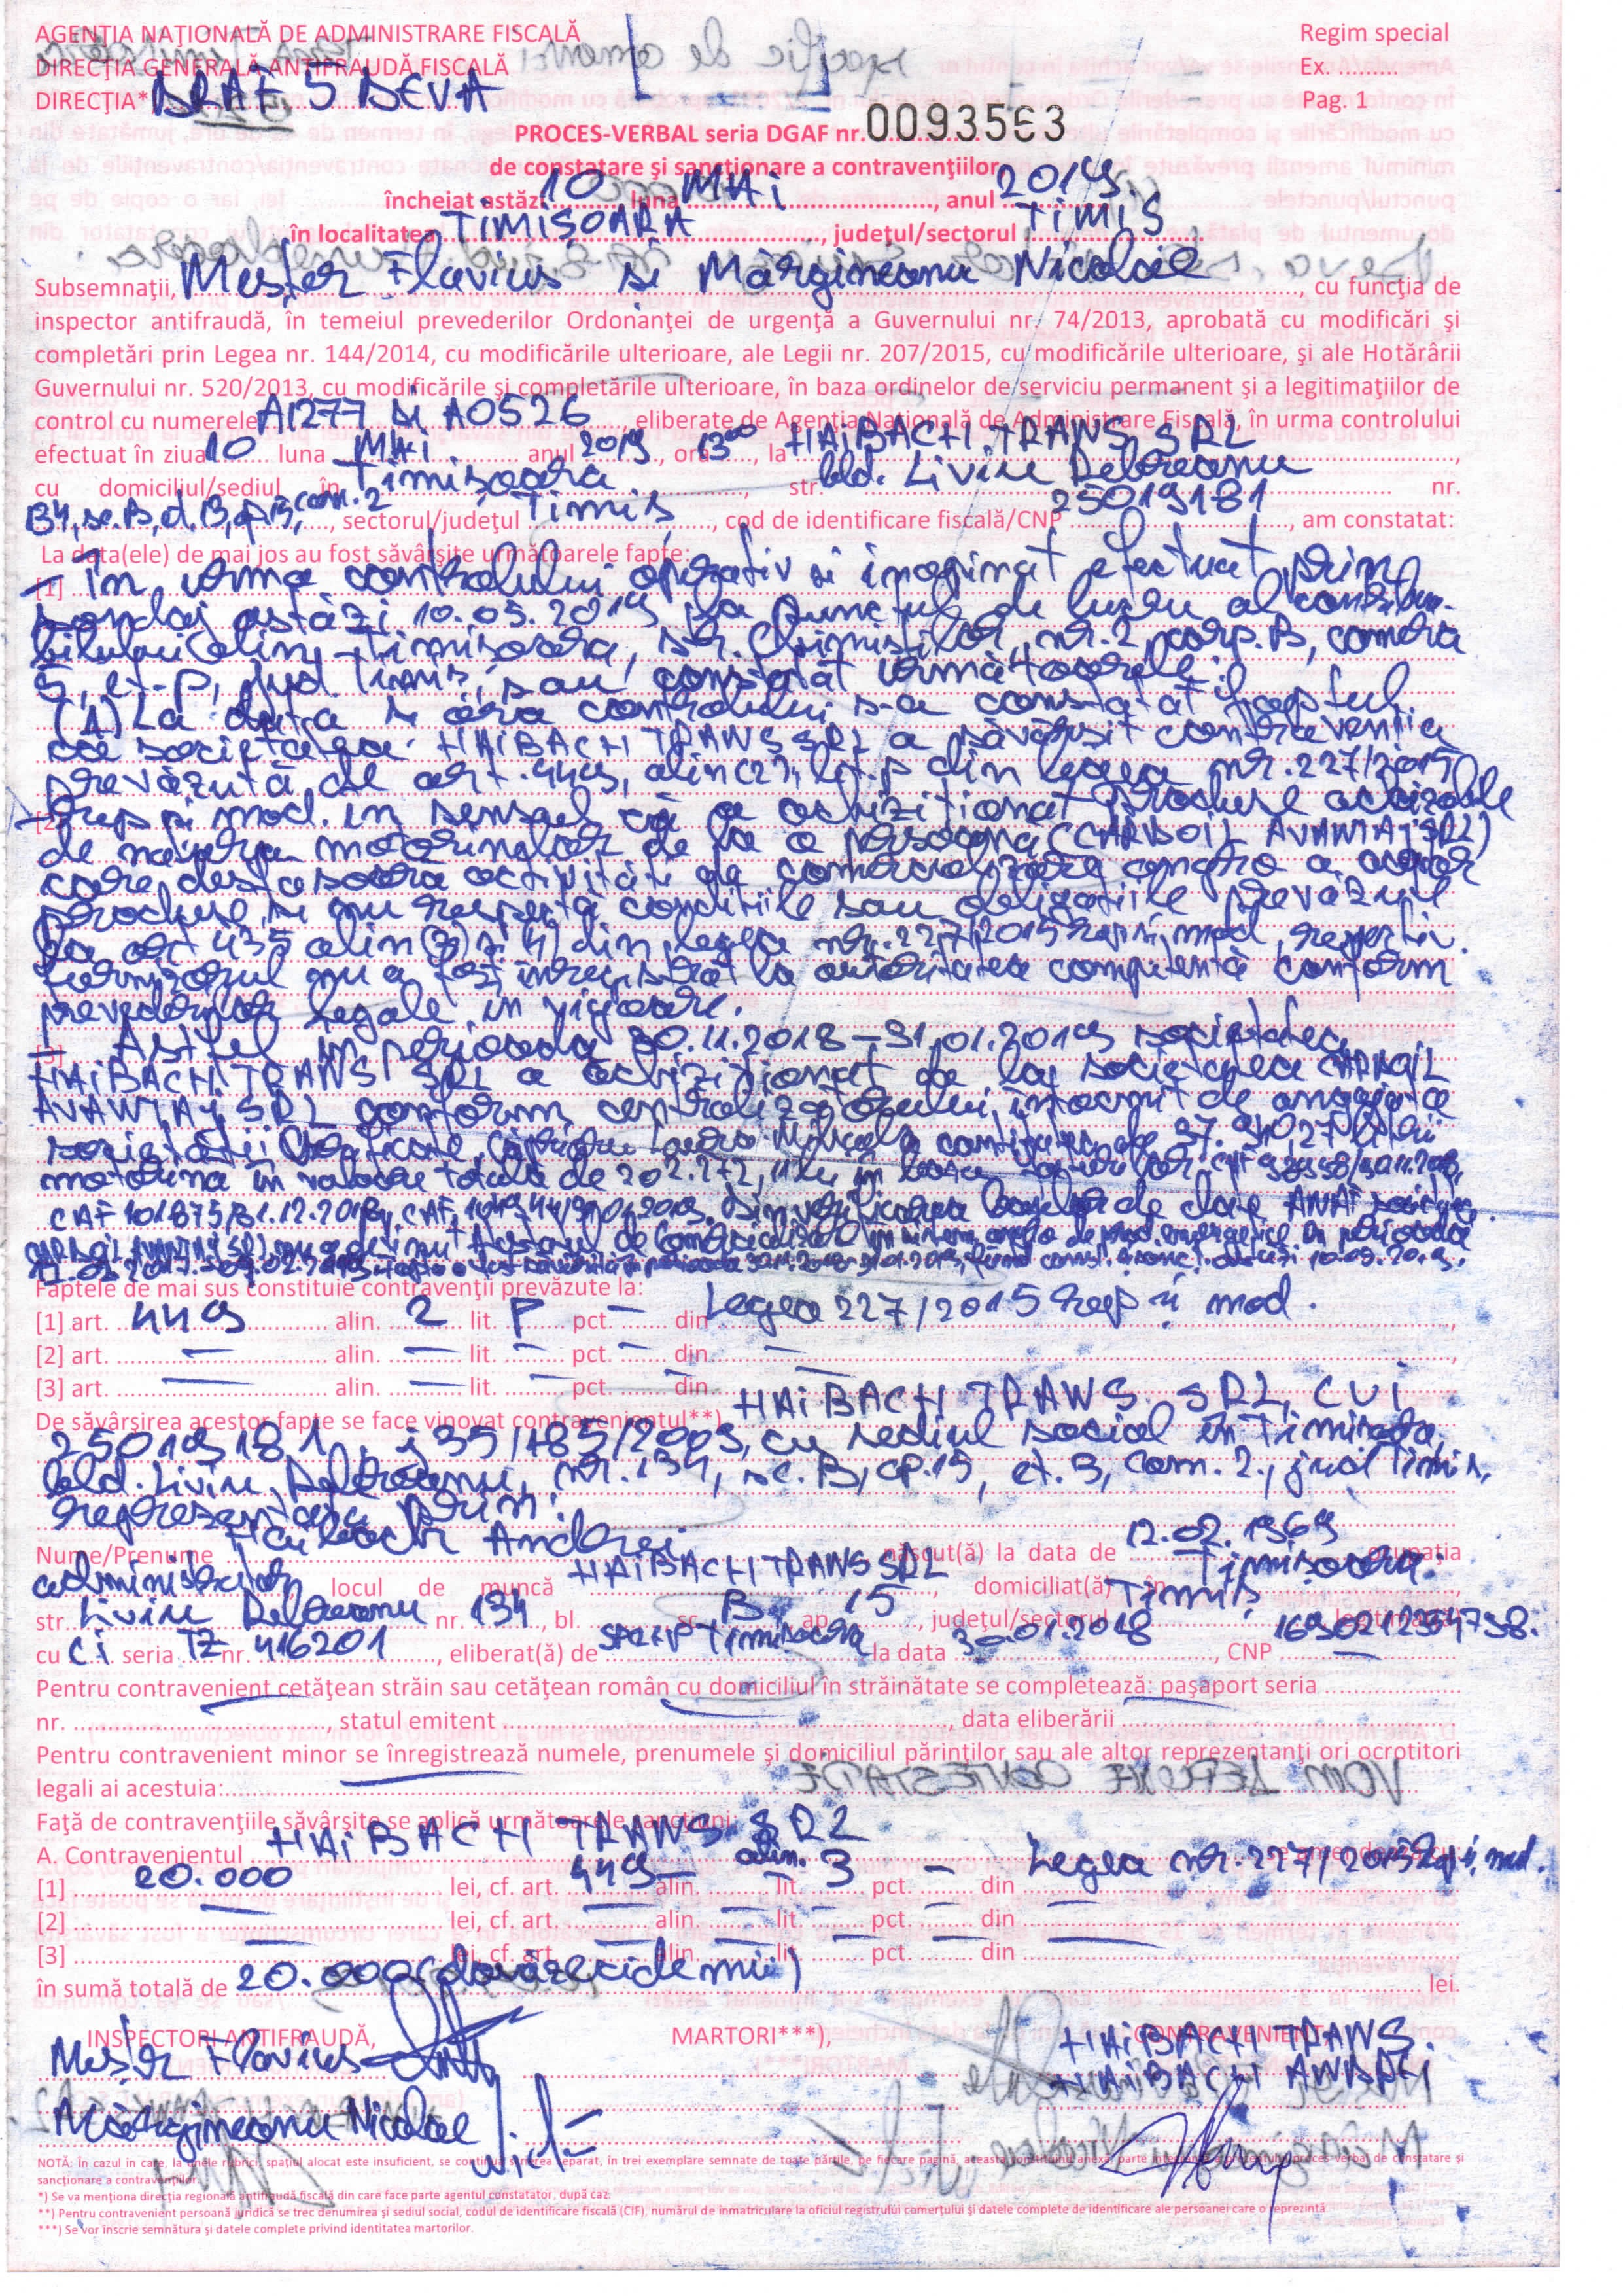 AGENȚIA NAȚIONALĂ DE ADMINISTRARE FISCALĂ Regim special
DIRECȚIA GENERALĂ ANTIFRAUDĂ FISCALĂ Ex. .........
DIRECȚIA* DRAF 5 DEVA Pag. 1
PROCES-VERBAL seria DGAF nr. 0093563
de constatare și sancționare a contravențiilor
încheiat astăzi 10 luna MAi, anul 2019.
în localitatea TIMIȘOARA, județul/sectorul TIMIȘ
Subsemnații, Meșter Flavius și Mărgineanu Nicolae, cu funcția de
inspector antifraudă, în temeiul prevederilor Ordonanței de urgență a Guvernului nr. 74/2013, aprobată cu modificări și
completări prin Legea nr. 144/2014, cu modificările ulterioare, ale Legii nr. 207/2015, cu modificările ulterioare, și ale Hotărârii
Guvernului nr. 520/2013, cu modificările și completările ulterioare, în baza ordinelor de serviciu permanent și a legitimațiilor de
control cu numerele A1277 și A0526, eliberate de Agenția Națională de Administrare Fiscală, în urma controlului
efectuat în ziua 10 luna MAi anul 2019, ora 13⁰⁰, la HAiBACH TRANS SRL,
cu domiciliul/sediul în Timișoara, str. bld. Liviu Rebreanu nr.
sc. B, cam. 2, sectorul/județul Timiș, cod de identificare fiscală/CNP 25019181, am constatat:
La data(ele) de mai jos au fost săvârșite următoarele fapte:
[1] – În urma controlului operativ și inopinat efectuat prin
sondaj astăzi 10.05.2019 la punctul de lucru al contribua-
bilului din Timișoara, str. Chimiștilor, nr. 2, corp. B, camera
5, et. P, jud. Timiș, s-au constatat următoarele:
(1) La data și ora controlului s-a constatat faptul
că societatea HAIBACH TRANS SRL a săvârșit contravenția
prevăzută de art. 449, alin (2), lit. p din legea nr. 227/2015
[2] rep și mod. în sensul că a achiziționat produse accizabile
de natura motorinelor de la o persoana (CARBOIL AVANTAJ SRL)
care desfasoara activități de comercializare angro a acestor
produse și nu respectă condițiile sau obligațiile prevăzute
la art 435 alin (3) și 4) din legea nr. 227/2015 rep și mod, respectiv
furnizorul nu a fost înregistrat la autoritatea competentă conform
prevederilor legale în vigoare.
[3] – Astfel în perioada 30.11.2018 – 31.01.2019 societatea
HAIBACH TRANS SRL a achiziționat de la societatea CARBOIL
AVANTAJ SRL conform centralizatorului întocmit de angajata
societății verificate, cantitatea de 37.910,27 litri
motorina în valoare totală de 202.272,11 lei în baza
CAF 101875/31.12.2018, Din verificarea bazelor de date ANAF
Faptele de mai sus constituie contravenții prevăzute la:
[1] art. 449 alin. 2 lit. p pct. – din Legea 227/2015 rep și mod.
[2] art. – alin. – lit. – pct. – din –
[3] art. – alin. – lit. – pct. – din –
De săvârșirea acestor fapte se face vinovat contravenientul**) HAIBACH TRANS SRL, CUI
25019181, J35/185/2009, cu sediul social în Timișoara,
bld. Liviu Rebreanu, nr. 134, sc. B, ap. 15, et. 3, cam. 2, jud Timiș,
reprezentată prin:
Nume/Prenume Haibach Andrei născut(ă) la data de 12.02.1969 ocupația
administrator, locul de muncă HAIBACH TRANS SRL, domiciliat(ă) în Timișoara,
str. Liviu Rebreanu nr. 134, bl. sc. B ap. 15, județul/sectorul Timiș, legitimat(ă)
cu Ci seria TZ nr. 416201, eliberat(ă) de SPCLEP Timișoara la data 30.01.2018, CNP
Pentru contravenient cetățean străin sau cetățean român cu domiciliul în străinătate se completează: pașaport seria
nr. , statul emitent , data eliberării
Pentru contravenient minor se înregistrează numele, prenumele și domiciliul părinților sau ale altor reprezentanți ori ocrotitori
legali ai acestuia:
Față de contravențiile săvârșite se aplică următoarele sancțiuni:
A. Contravenientul HAIBACH TRANS SRL se amendează cu:
[1] 20.000 lei, cf. art. 449 alin. 3 lit. pct. – din Legea nr. 227/2015 rep și mod.
[2] – lei, cf. art. – alin. – lit. – pct. – din –
[3] – lei, cf. art. – alin. – lit. – pct. – din –
în sumă totală de 20.000 (douăzecidemii) lei.
INSPECTORI ANTIFRAUDĂ, MARTORI***), CONTRAVENIENT,
Meșter Flavius HAIBACH TRANS
HAIBACH ANDREI
Mărgineanu Nicolae
NOTĂ: În cazul în care, la unele rubrici, spațiul alocat este insuficient, se continuă scrierea separat, în trei exemplare semnate de toate părțile, pe fiecare pagină, aceasta constituind anexă, parte integrantă a prezentului proces verbal de constatare și
sancționare a contravențiilor.
*) Se va menționa direcția regională antifraudă fiscală din care face parte agentul constatator, după caz.
**) Pentru contravenient persoană juridică se trec denumirea și sediul social, codul de identificare fiscală (CIF), numărul de înmatriculare la oficiul registrului comerțului și datele complete de identificare ale persoanei care o reprezintă
***) Se vor înscrie semnătura și datele complete privind identitatea martorilor.